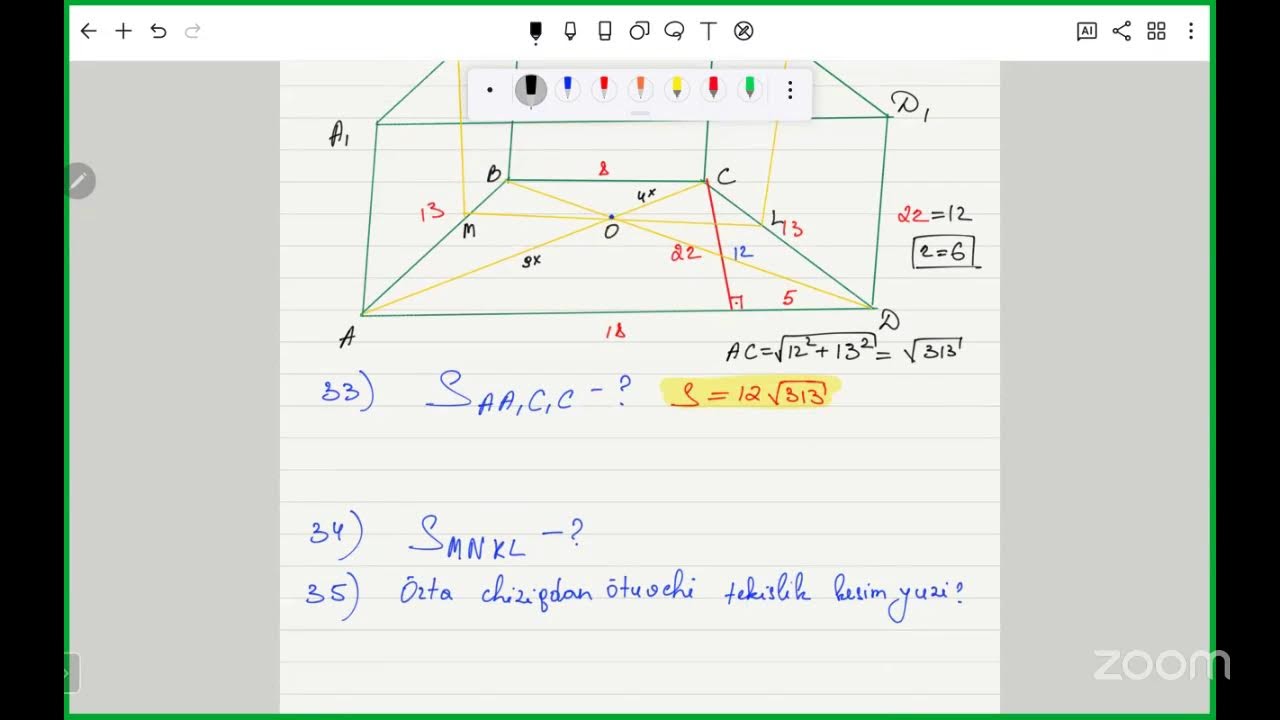 AI
T
A₁
D₁
B
8
C
4x
13
M
O
L
13
22 = 12
2 = 6
9x
22
12
5
A
18
D
AC = √12² + 13² = √313
33) S AA₁C₁C - ? S = 12√313
34) S MNKL - ?
35) Örta chiziqdan ötuvchi tekislik kesim yuzi?
zoom